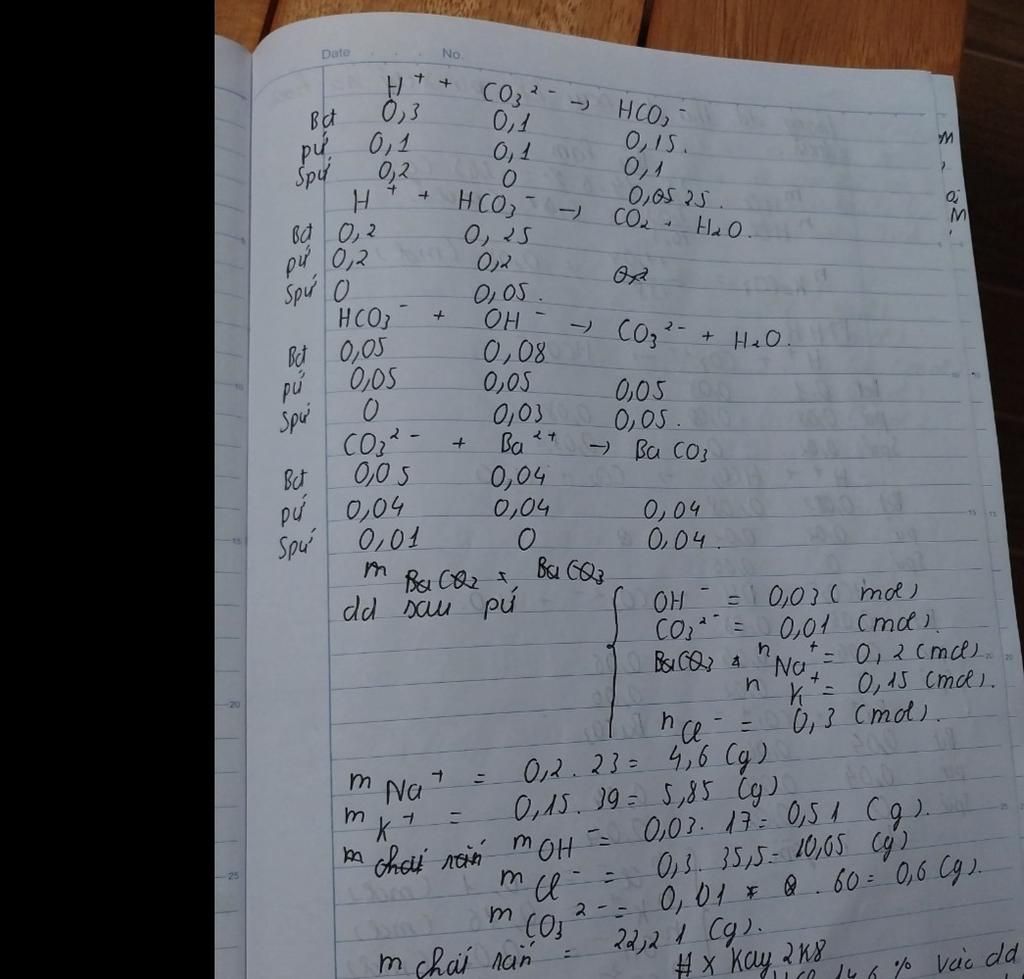 Date No.
H⁺ + CO₃²⁻ → HCO₃⁻
Bđ 0,3 0,1 0,15.
pứ 0,1 0,1 0,1
Spứ 0,2 0 0,0525.
H⁺ + HCO₃⁻ → CO₂ + H₂O.
Bđ 0,2 0,25
pứ 0,2 0,2 0,2
Spứ 0 0,05.
HCO₃⁻ + OH⁻ → CO₃²⁻ + H₂O.
Bđ 0,05 0,08
pứ 0,05 0,05 0,05
Spứ 0 0,03 0,05.
CO₃²⁻ + Ba²⁺ → BaCO₃
Bđ 0,05 0,04
pứ 0,04 0,04 0,04
Spứ 0,01 0 0,04.
m BaCO₃ = BaCO₃
dd sau pứ
OH⁻ = 0,03 (mol)
CO₃²⁻ = 0,01 (mol).
BaCO₃ n Na⁺ = 0,2 (mol)
n K⁺ = 0,15 (mol).
n Cl⁻ = 0,3 (mol).
m Na⁺ = 0,2 . 23 = 4,6 (g)
m K⁺ = 0,15. 39 = 5,85 (g)
m chai rắn m OH⁻ = 0,03. 17 = 0,51 (g).
m Cl⁻ = 0,3. 35,5 = 10,65 (g)
m CO₃²⁻ = 0,01 . 60 = 0,6 (g).
m chai rắn = 22,21 (g).
# x Kay 2K8
% vào dd